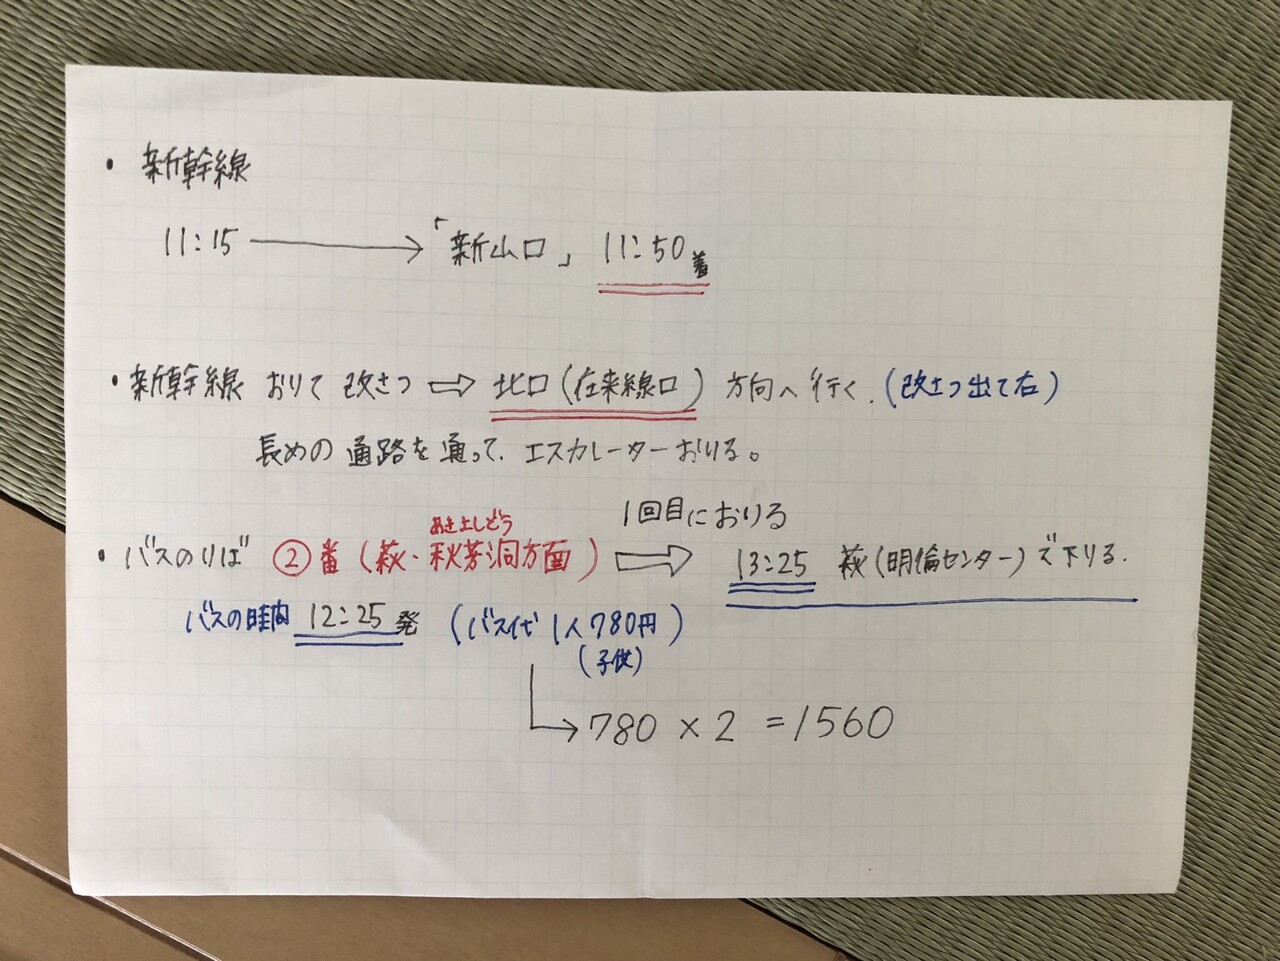 ・新幹線
11:15 → 「新山口」 11:50着
・新幹線 おりて 改さつ ⇨ 北口(在来線口) 方向へ行く.(改さつ出て右)
長めの 通路を通って、エスカレーターおりる。
1回目におりる
あきよしどう
・バスのりば ②番(萩・秋芳洞方面) ⇨ 13:25 萩(明倫センター)で下りる.
バスの時間 12:25発 (バス代 1人780円)
(子供)
→780 × 2 =1560